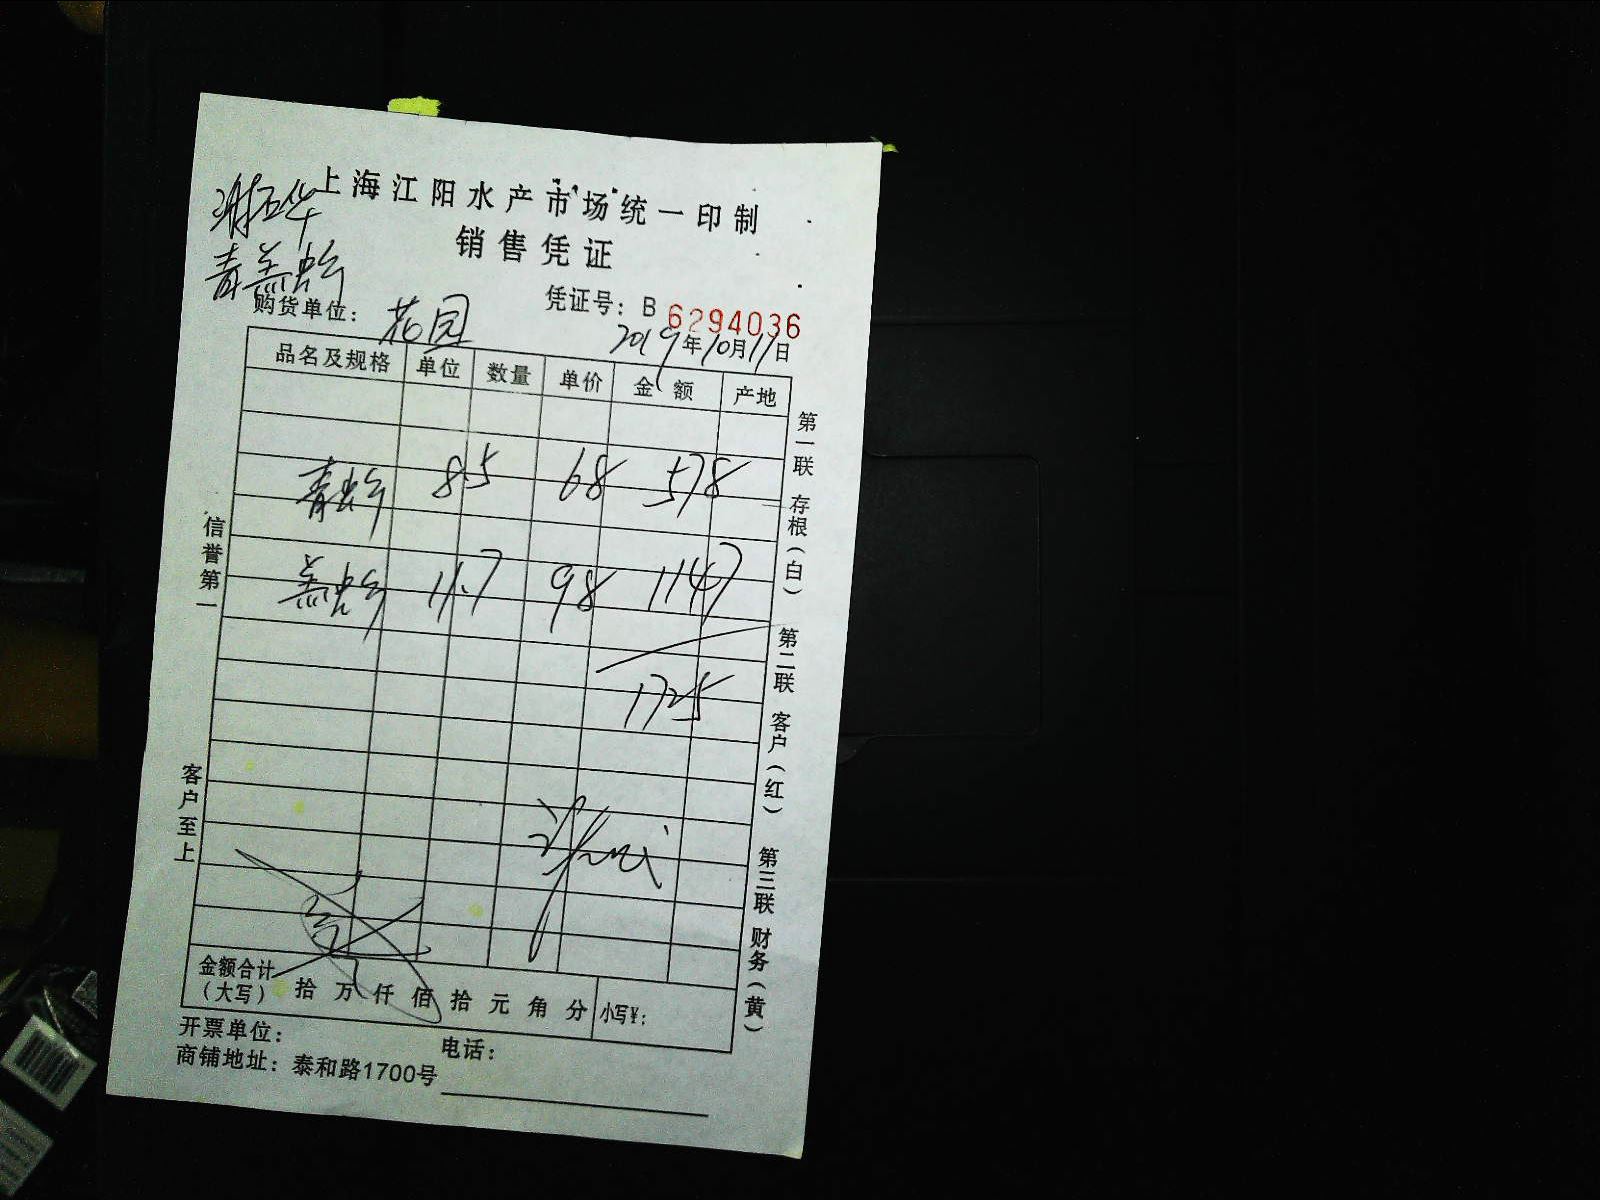 上海江阳水产市场统一印制
销售凭证
青羔蟹
购货单位：花园
凭证号：B 6294036
2019年10月17日
品名及规格 单位 数量 单价 金额 产地
青虾 8.5 68 578
羔虾 11.7 98 1147
1725
信誉第一
客户至上
第一联 存根（白）
第二联 客户（红）
第三联 财务（黄）
金额合计（大写） 拾 万 仟 佰 拾 元 角 分 小写¥：
开票单位： 电话：
商铺地址：泰和路1700号